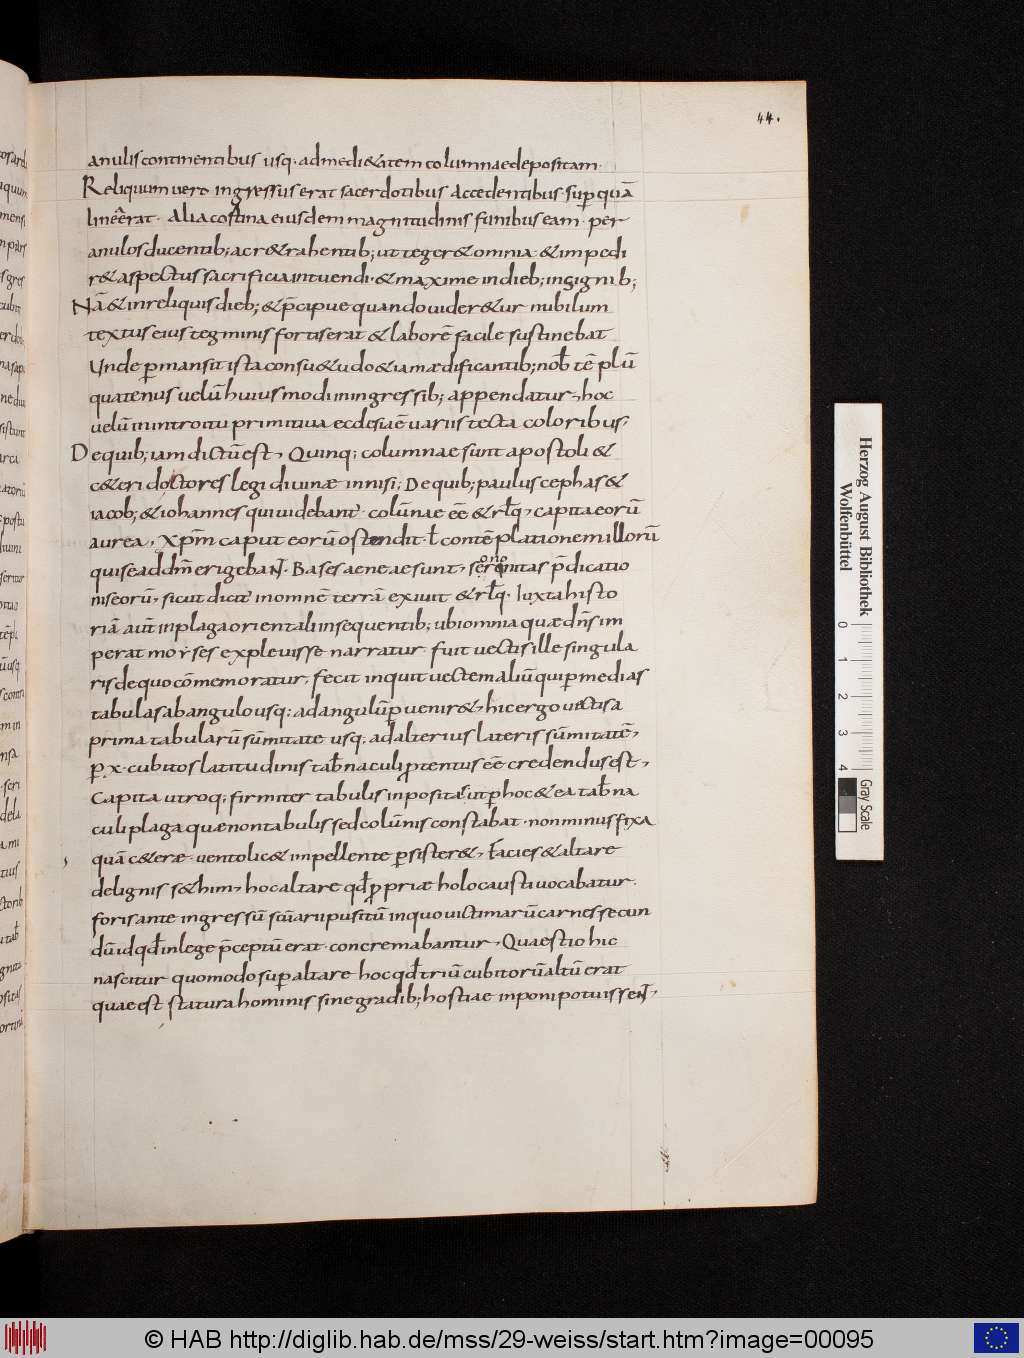 44.
anulis continentibus usq· ad medi&atem columnae depositam·
Reliquum vero ingressus erat sacerdotibus accedentibus· sup quā
lineā erat· alia cortina eiusdem magnitudinis funibus eam· per
anulos ducentib; ac r&rahentib; ut teger& omnia & impedi
r& aspectus sacrificia intuendi· & maxime in dieb; insignib;
Nā & in reliquis dieb; & p̄cipue quando uider&ur nubilum
textus eius tegminis fortis erat & laborē facile sustinebat
Unde pmansit ista consu&udo & iam ædificantib; nob̄ tēplū
quatenus uelū huiusmodi in ingressib; appendatur, hoc
uelū in introitu primitiua ecclesiaē uariis tecta coloribus,
De quib; iam dictū est, Quinq; columnae sunt apostoli &
c&eri doctores legi diuinæ innisi; De quib; paulus cephas &
iacob; & iohannes qui uidebant̄· colūnae eē & rl̄q, capita eorū
aurea, Xp̄m caput eorū ostendit· ł contēplationem illorū
qui se ad dm̄ erigebaNT· Bases aeneae sunt, p̄dicatio
nis eorū, sicut dicit in omnē terrā exiuit & rl̄q· Iuxta histo
riā aut̄ in plaga orientali insequentib; ubi omnia quæ dn̄s im
perat moyses explevisse narratur· fuit uectis ille singula
ris de quo cōmemoratur, fecit inquit uectem aliū qui p medias
tabulas ab angulo usq; ad angulū puenir&, hic ergo uectis a
prima tabularū sūmitate usq; ad alterius lateris sūmitatē,
p· x· cubitos latitudinis tab̄naculi ptentus eē credendus est,
Capita utroq; firmiter tabulis inposita ut p hoc & ea tab̄na
culi plaga quæ non tabulis sed colūnis constabat· non minus fixa
quā c&eræ· uento lic& inpellente psister&, facies & altare
de lignis s&him, hoc altare qd̄ p priæ holocausti uocabatur·
foris ante ingressū scuarii pusitū in quo uictimarū carnes secun
dū id qd̄ in lege p̄ceptū erat· concremabantur, Quaestio hic
nascitur quomodo sup altare hoc qd̄ triū cubitorū altū erat
quae est statura hominis sine gradib; hostiae inponi potuisseNT,
Herzog August Bibliothek
Wolfenbüttel
0 1 2 3 4
Gray Scale
© HAB http://diglib.hab.de/mss/29-weiss/start.htm?image=00095